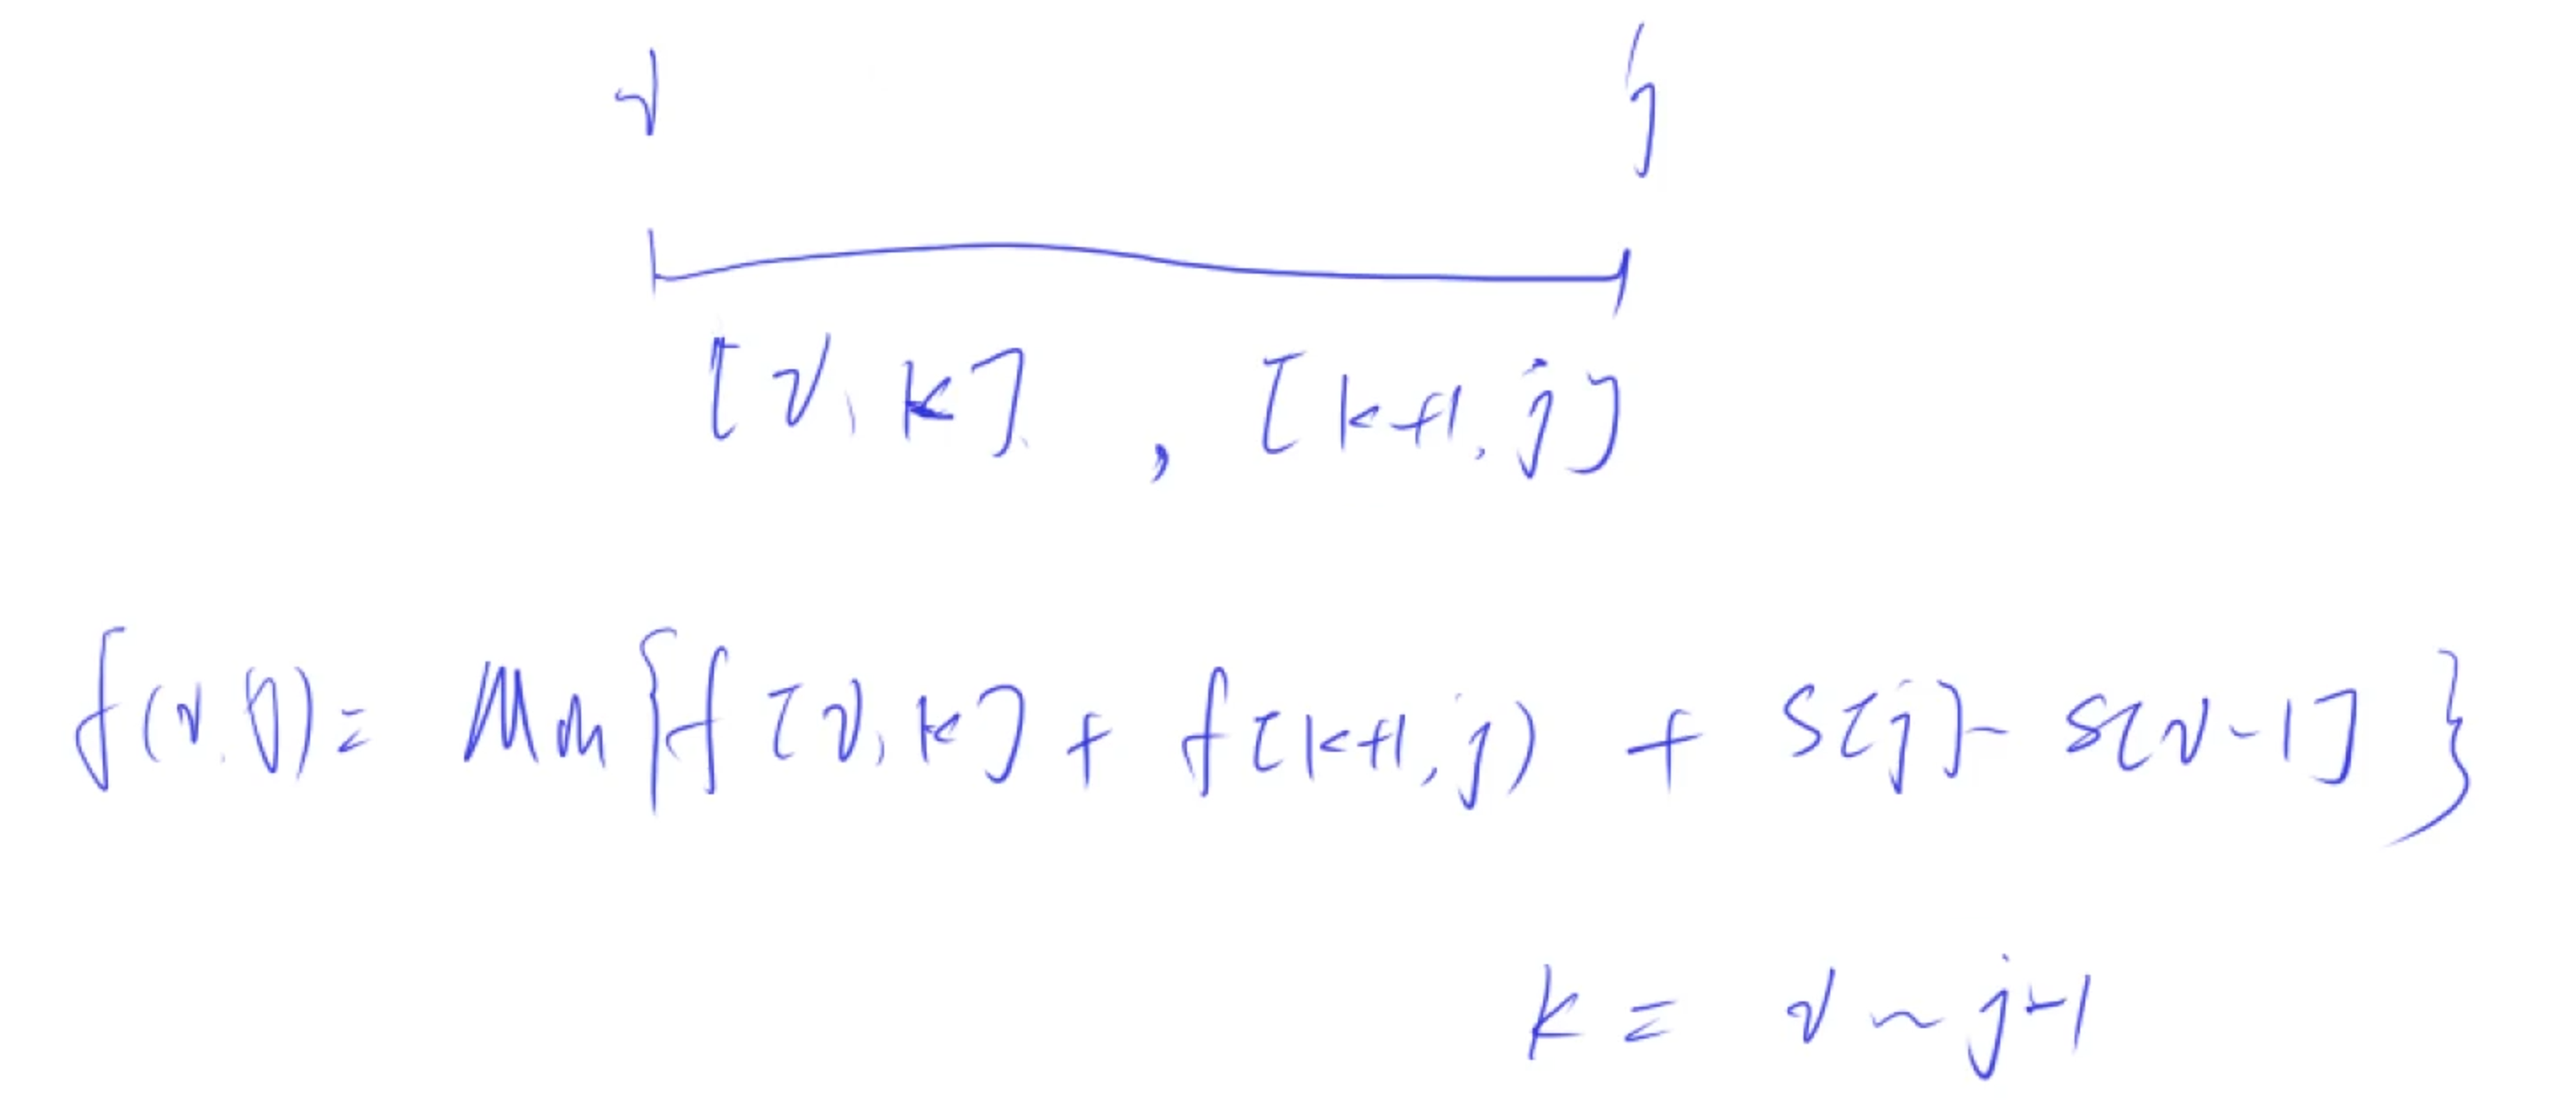 i j
[i, k] , [k+1, j]
f(i, j) = Min{f[i, k] + f[k+1, j) + s[j] - s[i-1]}
k = i ~ j-1